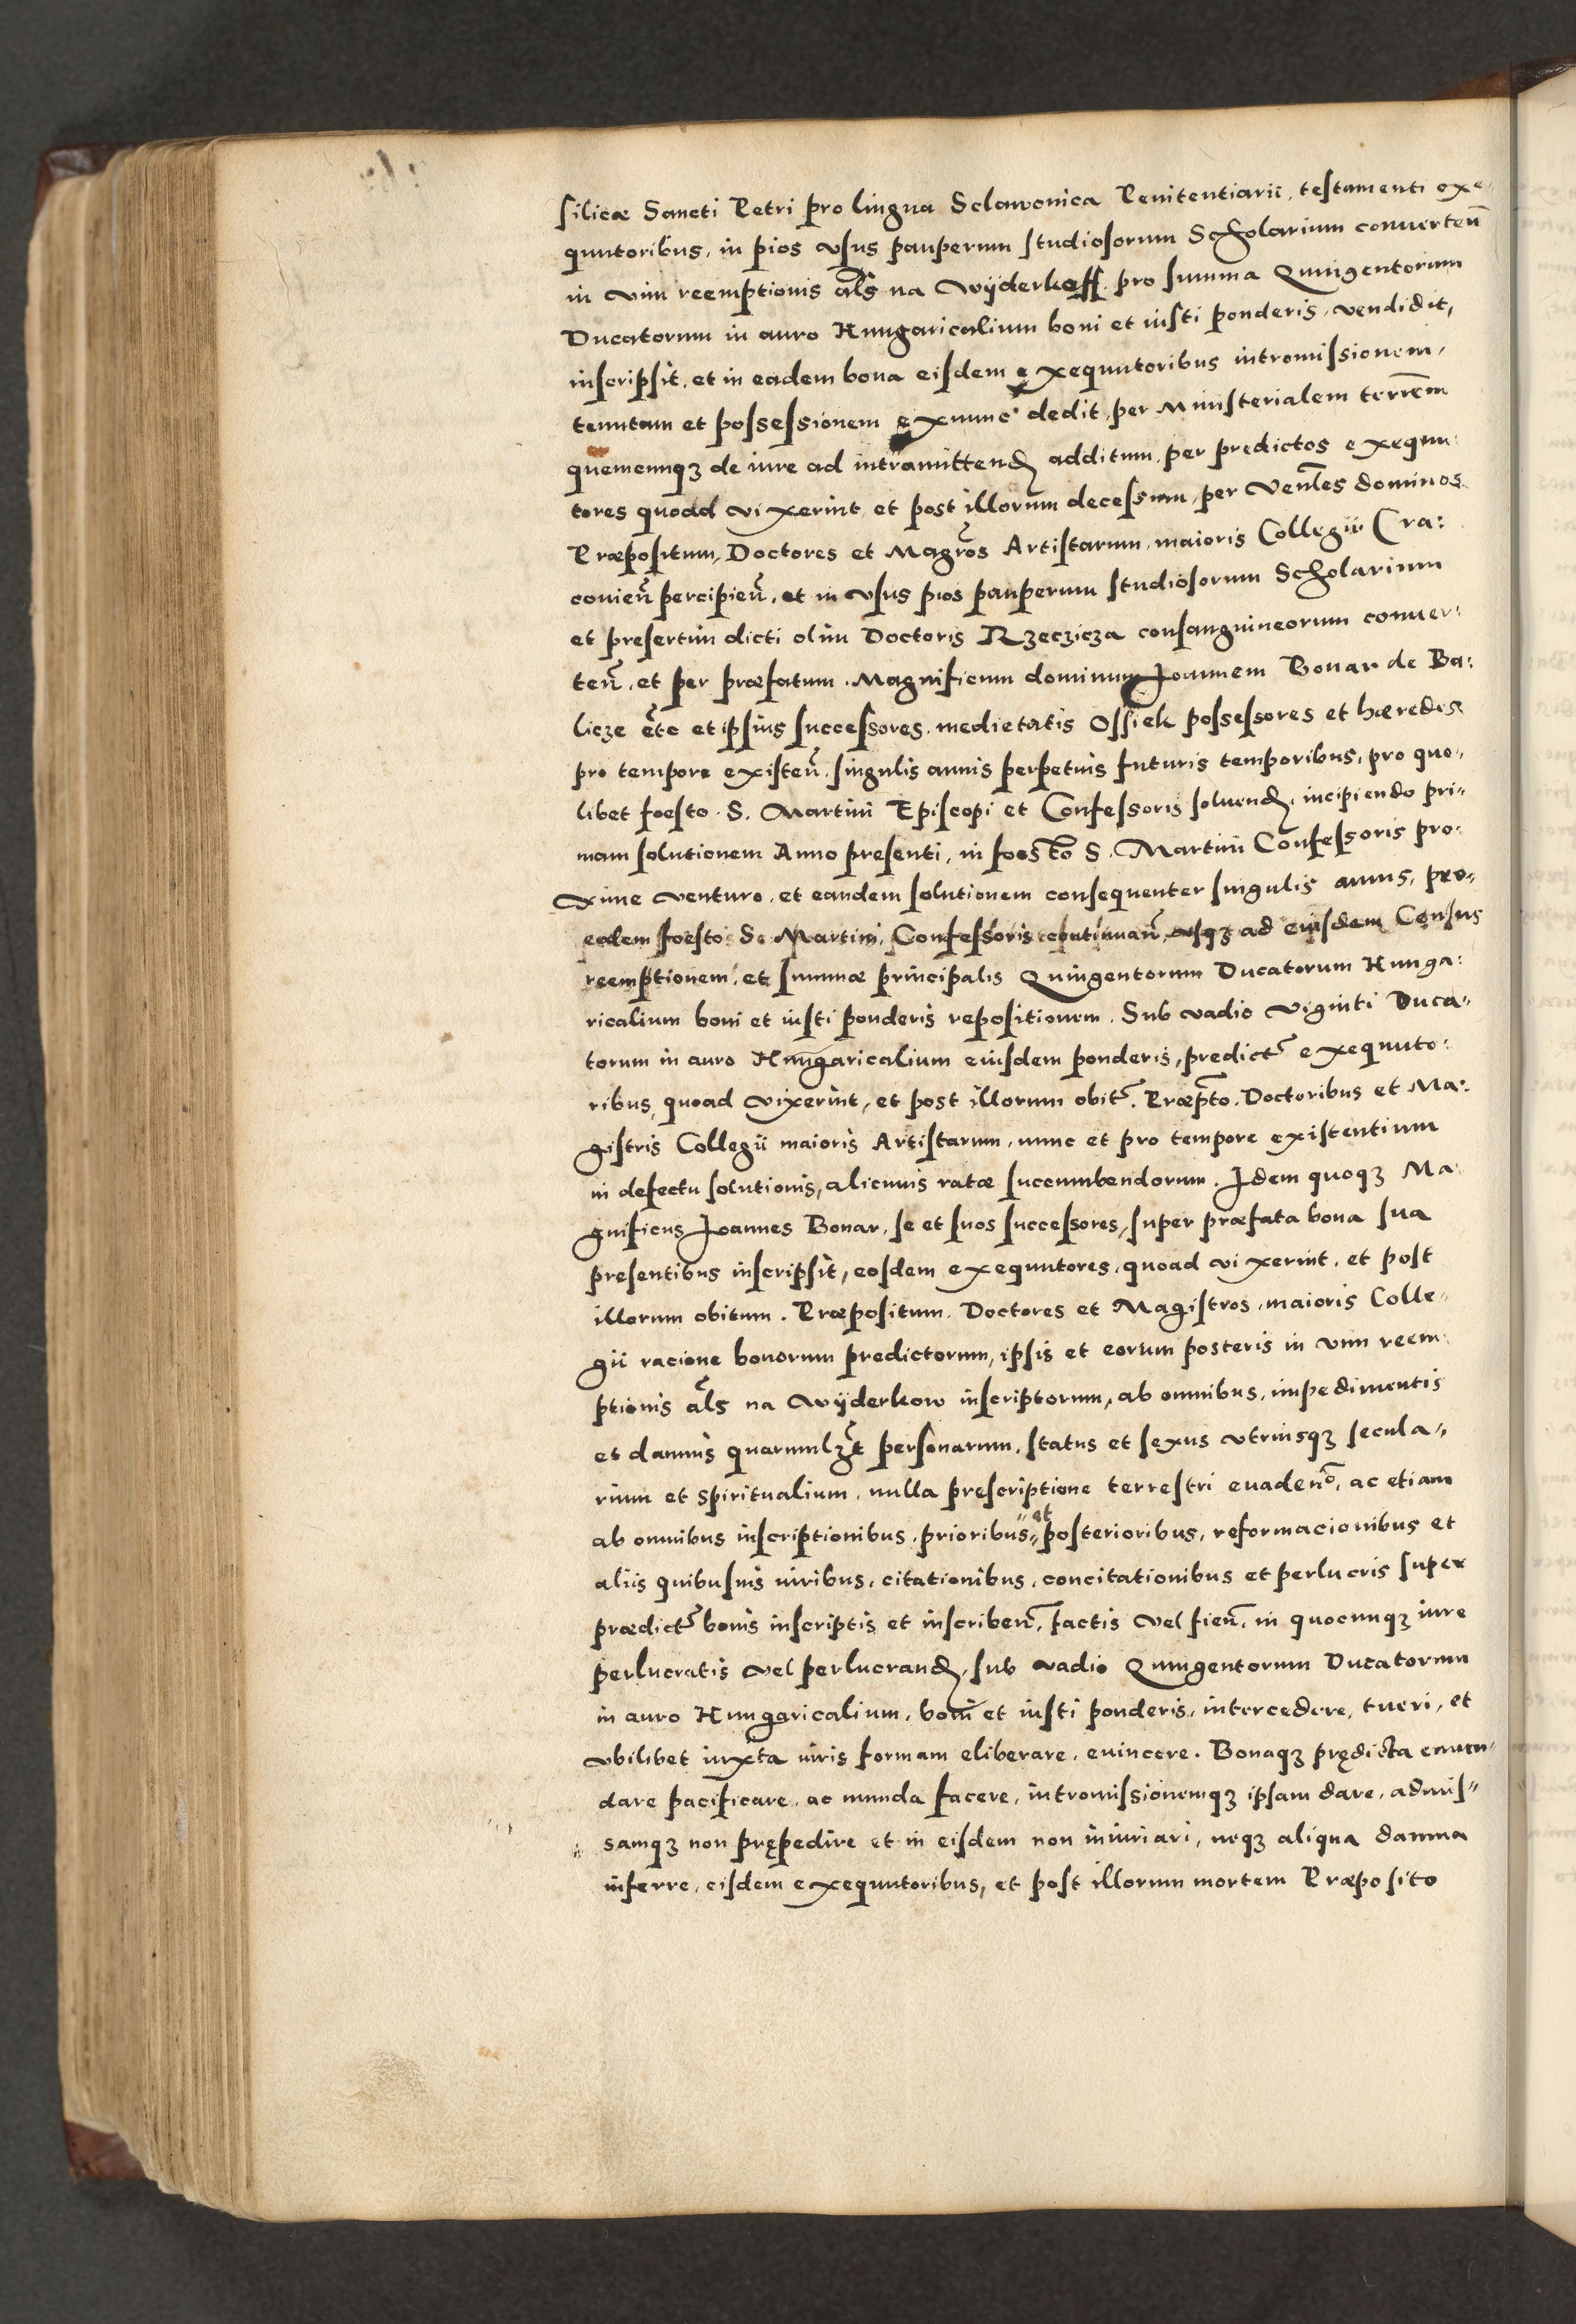 silicæ Sancti Petri pro lingua Sclawonica Penitentiarii, testamenti exe-
quutoribus, in pios usus pauperum studiosorum Scholarium conuerteñ
in vim reemptionis als̃ na Wÿderkoff pro summa Quingentorum
Ducatorum in auro Hungaricalium boni et iusti ponderis, vendidit,
inscripsit, et in eadem bona eisdem exequutoribus intromissionem,
tenutam et possessionem exnunc dedit, per Ministerialem terrēm
quemcunqꝫ de iure ad intramittenđ additum, per predictos exequu-
tores quoad vixerint et post illorum decessum, per Venl̃es dominos
Præpositum, Doctores et Magr̃os Artistarum, maioris Collegii Cra:
covieñ percipieñ, et in usus pios pauperum studiosorum Scholarium
et presertim dicti olim Doctoris Rzeczicza consanguineorum conuer-
teñ, et per præfatum Magnificum dominum Joannem Bonar de Ba:
licze etc̃ et ipsius successores, medietatis Ossiek possessores et hæredes
pro tempore existeñ, singulis annis perpetuis futuris temporibus, pro quo-
libet foesto S. Martini Episcopi et Confessoris soluenđ, incipiendo pri-
mam solutionem Anno presenti, in foesto S. Martini Confessoris pro-
xime venturo, et eandem solutionem consequenter singulis annis, pro
eodem foesto S. Martini Confessoris continuañ, usqꝫ ad eiusdem Census
reemptionem, et summæ principalis Quingentorum Ducatorum Hunga:
ricalium boni et iusti ponderis repositionem. Sub vadio Viginti Duca-
torum in auro Hungaricalium eiusdem ponderis, predict̃ exequuto-
ribus, quoad vixerint, et post illorum obit̃. Præpto, Doctoribus et Ma:
gistris Collegii maioris Artistarum, nunc et pro tempore existentium
in defectu solutionis, alicuius ratæ succumbendorum. Idem quoqꝫ Ma-
gnificus Joannes Bonar, se et suos successores, super præfata bona sua
presentibus inscripsit, eosdem exequutores, quoad vixerint, et post
illorum obitum. Præpositum, Doctores et Magistros, maioris Colle-
gii racione bonorum predictorum, ipsis et eorum posteris in vim reem-
ptionis als̃ na Wÿderkow inscriptorum, ab omnibus, impedimentis
et damnis quarumlꝫt̃ personarum, status et sexus utriusqꝫ secula-
rium et spiritualium, nulla prescriptione terrestri evadenõ, ac etiam
ab omnibus inscriptionibus, prioribus et posterioribus, reformacionibus et
aliis quibusuis iuribus, citationibus, concitationibus et perlucris super
prædict̃ bonis inscriptis et inscribeñ, factis vel fieñ, in quocunqꝫ iure
perlucratis vel perlucranđ, sub vadio Quingentorum Ducatorum
in auro Hungaricalium, boni et iusti ponderis, intercedere, tueri, et
ubilibet iuxta iuris formam eliberare, euincere. Bonaqꝫ prędicta emun-
dare pacificare, ac munda facere, intromissionemqꝫ ipsam dare, admis-
samqꝫ non prępedire et in eisdem non iniuriari, neqꝫ aliqua damna
inferre, eisdem exequutoribus, et post illorum mortem Præposito